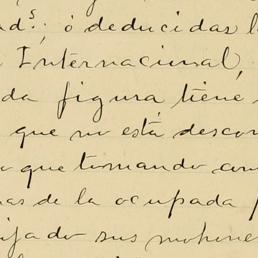 ads; ó deducidas l
Internacional,
da figura tiene
que no está descon
o que tomando com
nas de la ocupada p
ijado sus mohone